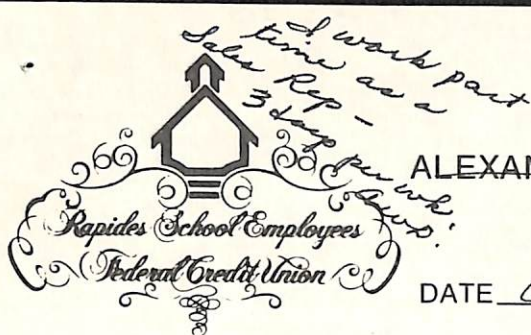 I work part
time as a
Sales Rep -
3 days per wk.
ALEXAN
Rapides School Employees
Federal Credit Union
DATE